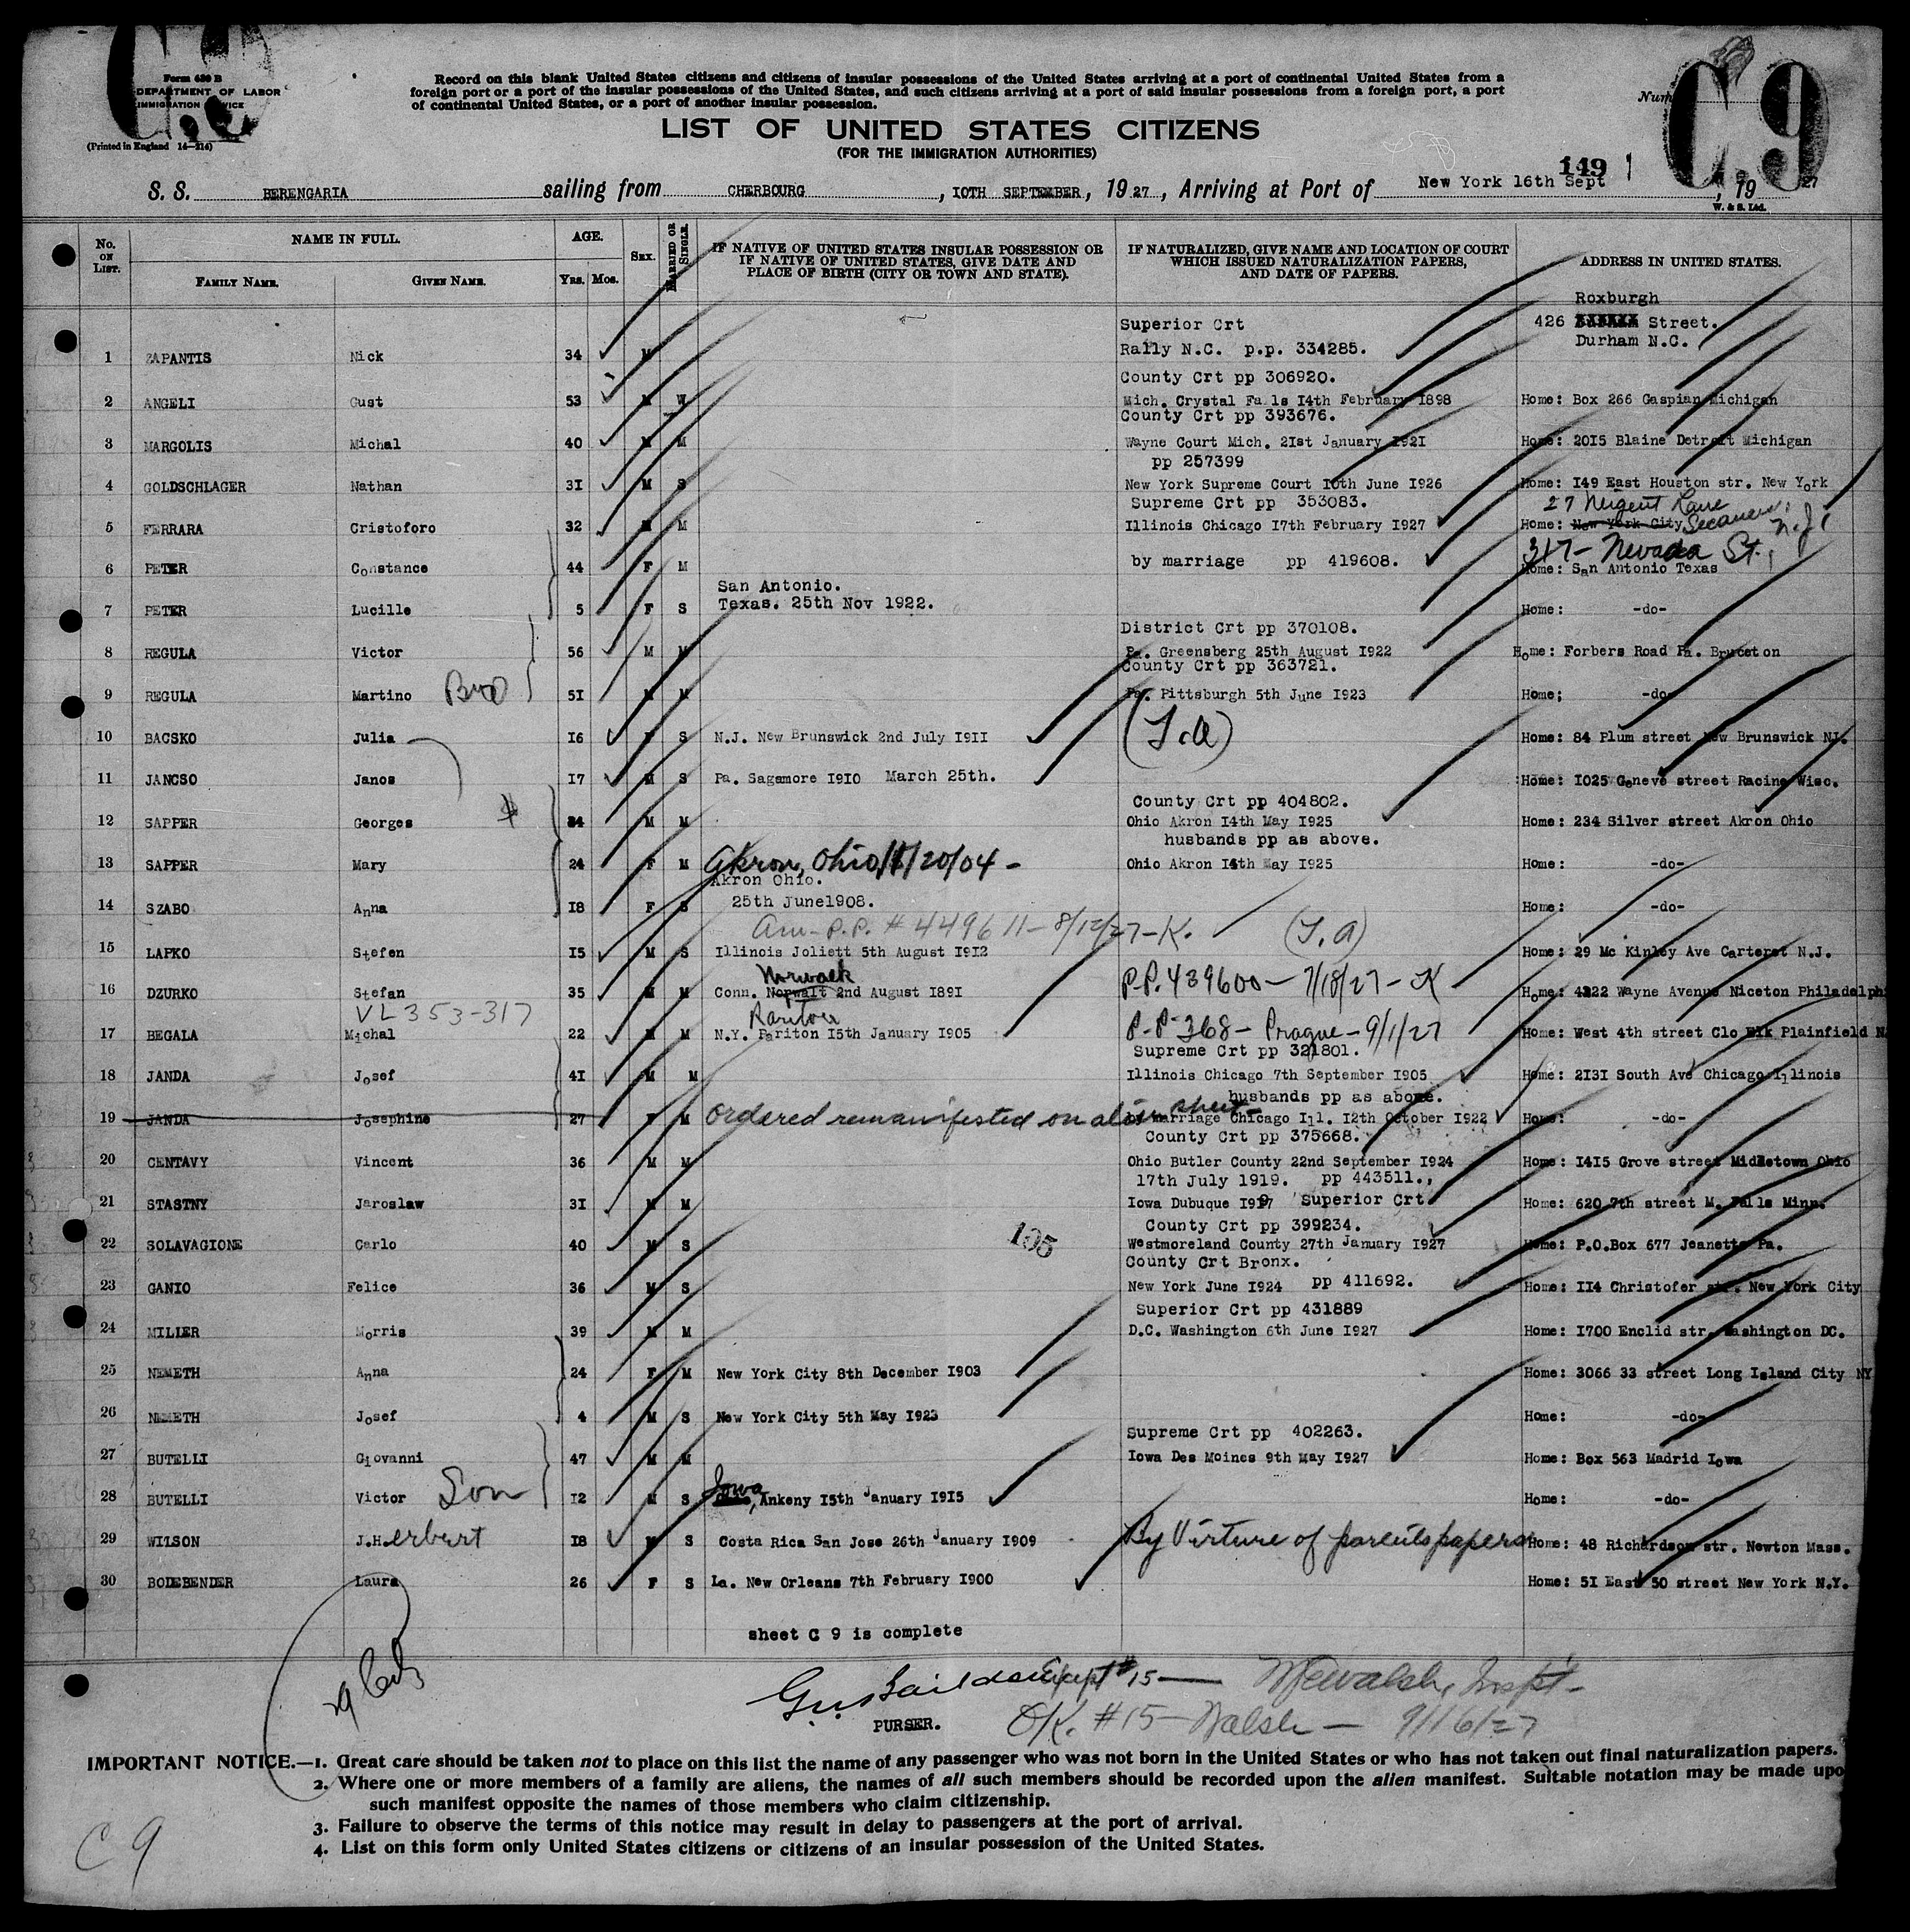 Form 630 B
DEPARTMENT OF LABOR
IMMIGRATION
(Printed in England 14—214)
Record on this blank United States citizens and citizens of insular possessions of the United States arriving at a port of continental United States from a
foreign port or a port of the insular possessions of the United States, and such citizens arriving at a port of said insular possessions from a foreign port, a port
of continental United States, or a port of another insular possession.
C 9
LIST OF UNITED STATES CITIZENS
(FOR THE IMMIGRATION AUTHORITIES)
149
S. S. BERENGARIA sailing from CHERBOURG, IOTH SEPTEMBER, 1927, Arriving at Port of New York 16th Sept, 1927
W. & S. Ltd.
No. ON LIST. NAME IN FULL. AGE. SEX. MARRIED OR SINGLE. IF NATIVE OF UNITED STATES INSULAR POSSESSION OR IF NATIVE OF UNITED STATES, GIVE DATE AND PLACE OF BIRTH (CITY OR TOWN AND STATE). IF NATURALIZED, GIVE NAME AND LOCATION OF COURT WHICH ISSUED NATURALIZATION PAPERS, AND DATE OF PAPERS. ADDRESS IN UNITED STATES.
FAMILY NAME. GIVEN NAME. YRS. MOS.
Roxburgh
Superior Crt 426 Street.
Durham N.C.
1 ZAPANTIS Nick 34 M Rally N.C. p.p. 334285.
County Crt pp 306920.
2 ANGELI Gust 53 M W Mich. Crystal Falls I4th February I898 Home: Box 266 Gaspian Michigan
County Crt pp 393676.
3 MARGOLIS Michal 40 M M Wayne Court Mich. 2Ist January I92I Home: 20I5 Blaine Detroit Michigan
pp 257399
4 GOLDSCHLAGER Nathan 3I M S New York Supreme Court I0th June I926 Home: I49 East Houston str. New York
Supreme Crt pp 353083. 27 Lane
5 FERRARA Cristoforo 32 M M Illinois Chicago I7th February I927 Home: New York City N.J.
317- Nevada St.,
6 PETER Constance 44 F M by marriage pp 419608. Home: San Antonio Texas
San Antonio.
7 PETER Lucille 5 F S Texas. 25th Nov 1922. Home: -do-
District Crt pp 370108.
8 REGULA Victor 56 M M Pa. Greensberg 25th August I922 Home: Forbers Road Pa. Bruceton
County Crt pp 363721.
9 REGULA Martino Bro 5I M M Pa. Pittsburgh 5th June I923 Home; -do-
(T.A)
10 BACSKO Julia I6 F S N.J. New Brunswick 2nd July I9II Home: 84 Plum street New Brunswick NJ.
11 JANCSO Janos I7 M S Pa. Sagamore I9I0 March 25th. Home: I025 Geneve street Racine Wisc.
County Crt pp 404802.
12 SAPPER Georges 34 M M Ohio Akron I4th May I925 Home: 234 Silver street Akron Ohio
husbands pp as above.
13 SAPPER Mary 24 F M Akron, Ohio, /20/04 - Ohio Akron I4th May I925 Home: -do-
Akron Ohio.
14 SZABO Anna I8 F S 25th June1908. Home: -do-
Am-P.P. # 449611 - 8/12/27-K. (T.A)
15 LAPKO Stefen I5 M S Illinois Joliett 5th August I9I2 Home: 29 Mc Kinley Ave Carteret N.J.
Norwalk
16 DZURKO Stefan 35 M M Conn. Norwalt 2nd August I89I P.P. 439600 - 7/18/27 - K Home: 4222 Wayne Avenue Niceton Philadelph
VL 353-317 Raritan
17 BEGALA Michal 22 M M N.Y. Pariton I5th January I905 P-P 368 - Prague - 9/1/27 Home: West 4th street Clo Elk Plainfield N
Supreme Crt pp 321801.
18 JANDA Josef 4I M M Illinois Chicago 7th September I905 Home: 2I3I South Ave Chicago Illinois
husbands pp as above.
19 JANDA Josephine 27 F M Ordered remanifested on alien sheet- by marriage Chicago Ill. I2th October I922 Home: -do-
County Crt pp 375668.
20 CENTAVY Vincent 36 M M Ohio Butler County 22nd September I924 Home: I4I5 Grove street Midletown Ohio
17th July 1919. pp 443511.
21 STASTNY Jaroslaw 3I M M Iowa Dubuque Superior Crt Home: 620 7th street M. Falls Minn.
County Crt pp 399234.
22 SOLAVAGIONE Carlo 40 M S Westmoreland County 27th January I927 Home: P.O.Box 677 Jeanette Pa.
195
County Crt Bronx.
23 GANIO Felice 36 M S New York June I924 pp 411692. Home: II4 Christofer str. New York City
Superior Crt pp 431889
24 MILLER Morris 39 M M D.C. Washington 6th June I927 Home: I700 Enclid str. Washington DC.
25 NEMETH Anna 24 F M New York City 8th December I903 Home: 3066 33 street Long Island City NY
26 NEMETH Josef 4 M S New York City 5th May I923 Home: -do-
Supreme Crt pp 402263.
27 BUTELLI Giovanni 47 M M Iowa Des Moines 9th May I927 Home: Box 563 Madrid Iowa
Iowa
28 BUTELLI Victor Son I2 M S , Ankeny I5th January I9I5 Home: -do-
29 WILSON J.Herbert I8 M S Costa Rica San Jose 26th January I909 By Virture of parents papers Home: 48 Richardson str. Newton Mass.
30 BODEBENDER Laura 26 F S La. New Orleans 7th February I900 Home: 5I East 50 street New York N.Y.
sheet C 9 is complete
Except #15 — Walsh, Inspt-
PURSER.
O/K. #15 - Walsh - 9/16/27
IMPORTANT NOTICE.—1. Great care should be taken not to place on this list the name of any passenger who was not born in the United States or who has not taken out final naturalization papers.
2. Where one or more members of a family are aliens, the names of all such members should be recorded upon the alien manifest. Suitable notation may be made upo
such manifest opposite the names of those members who claim citizenship.
3. Failure to observe the terms of this notice may result in delay to passengers at the port of arrival.
4. List on this form only United States citizens or citizens of an insular possession of the United States.
C 9